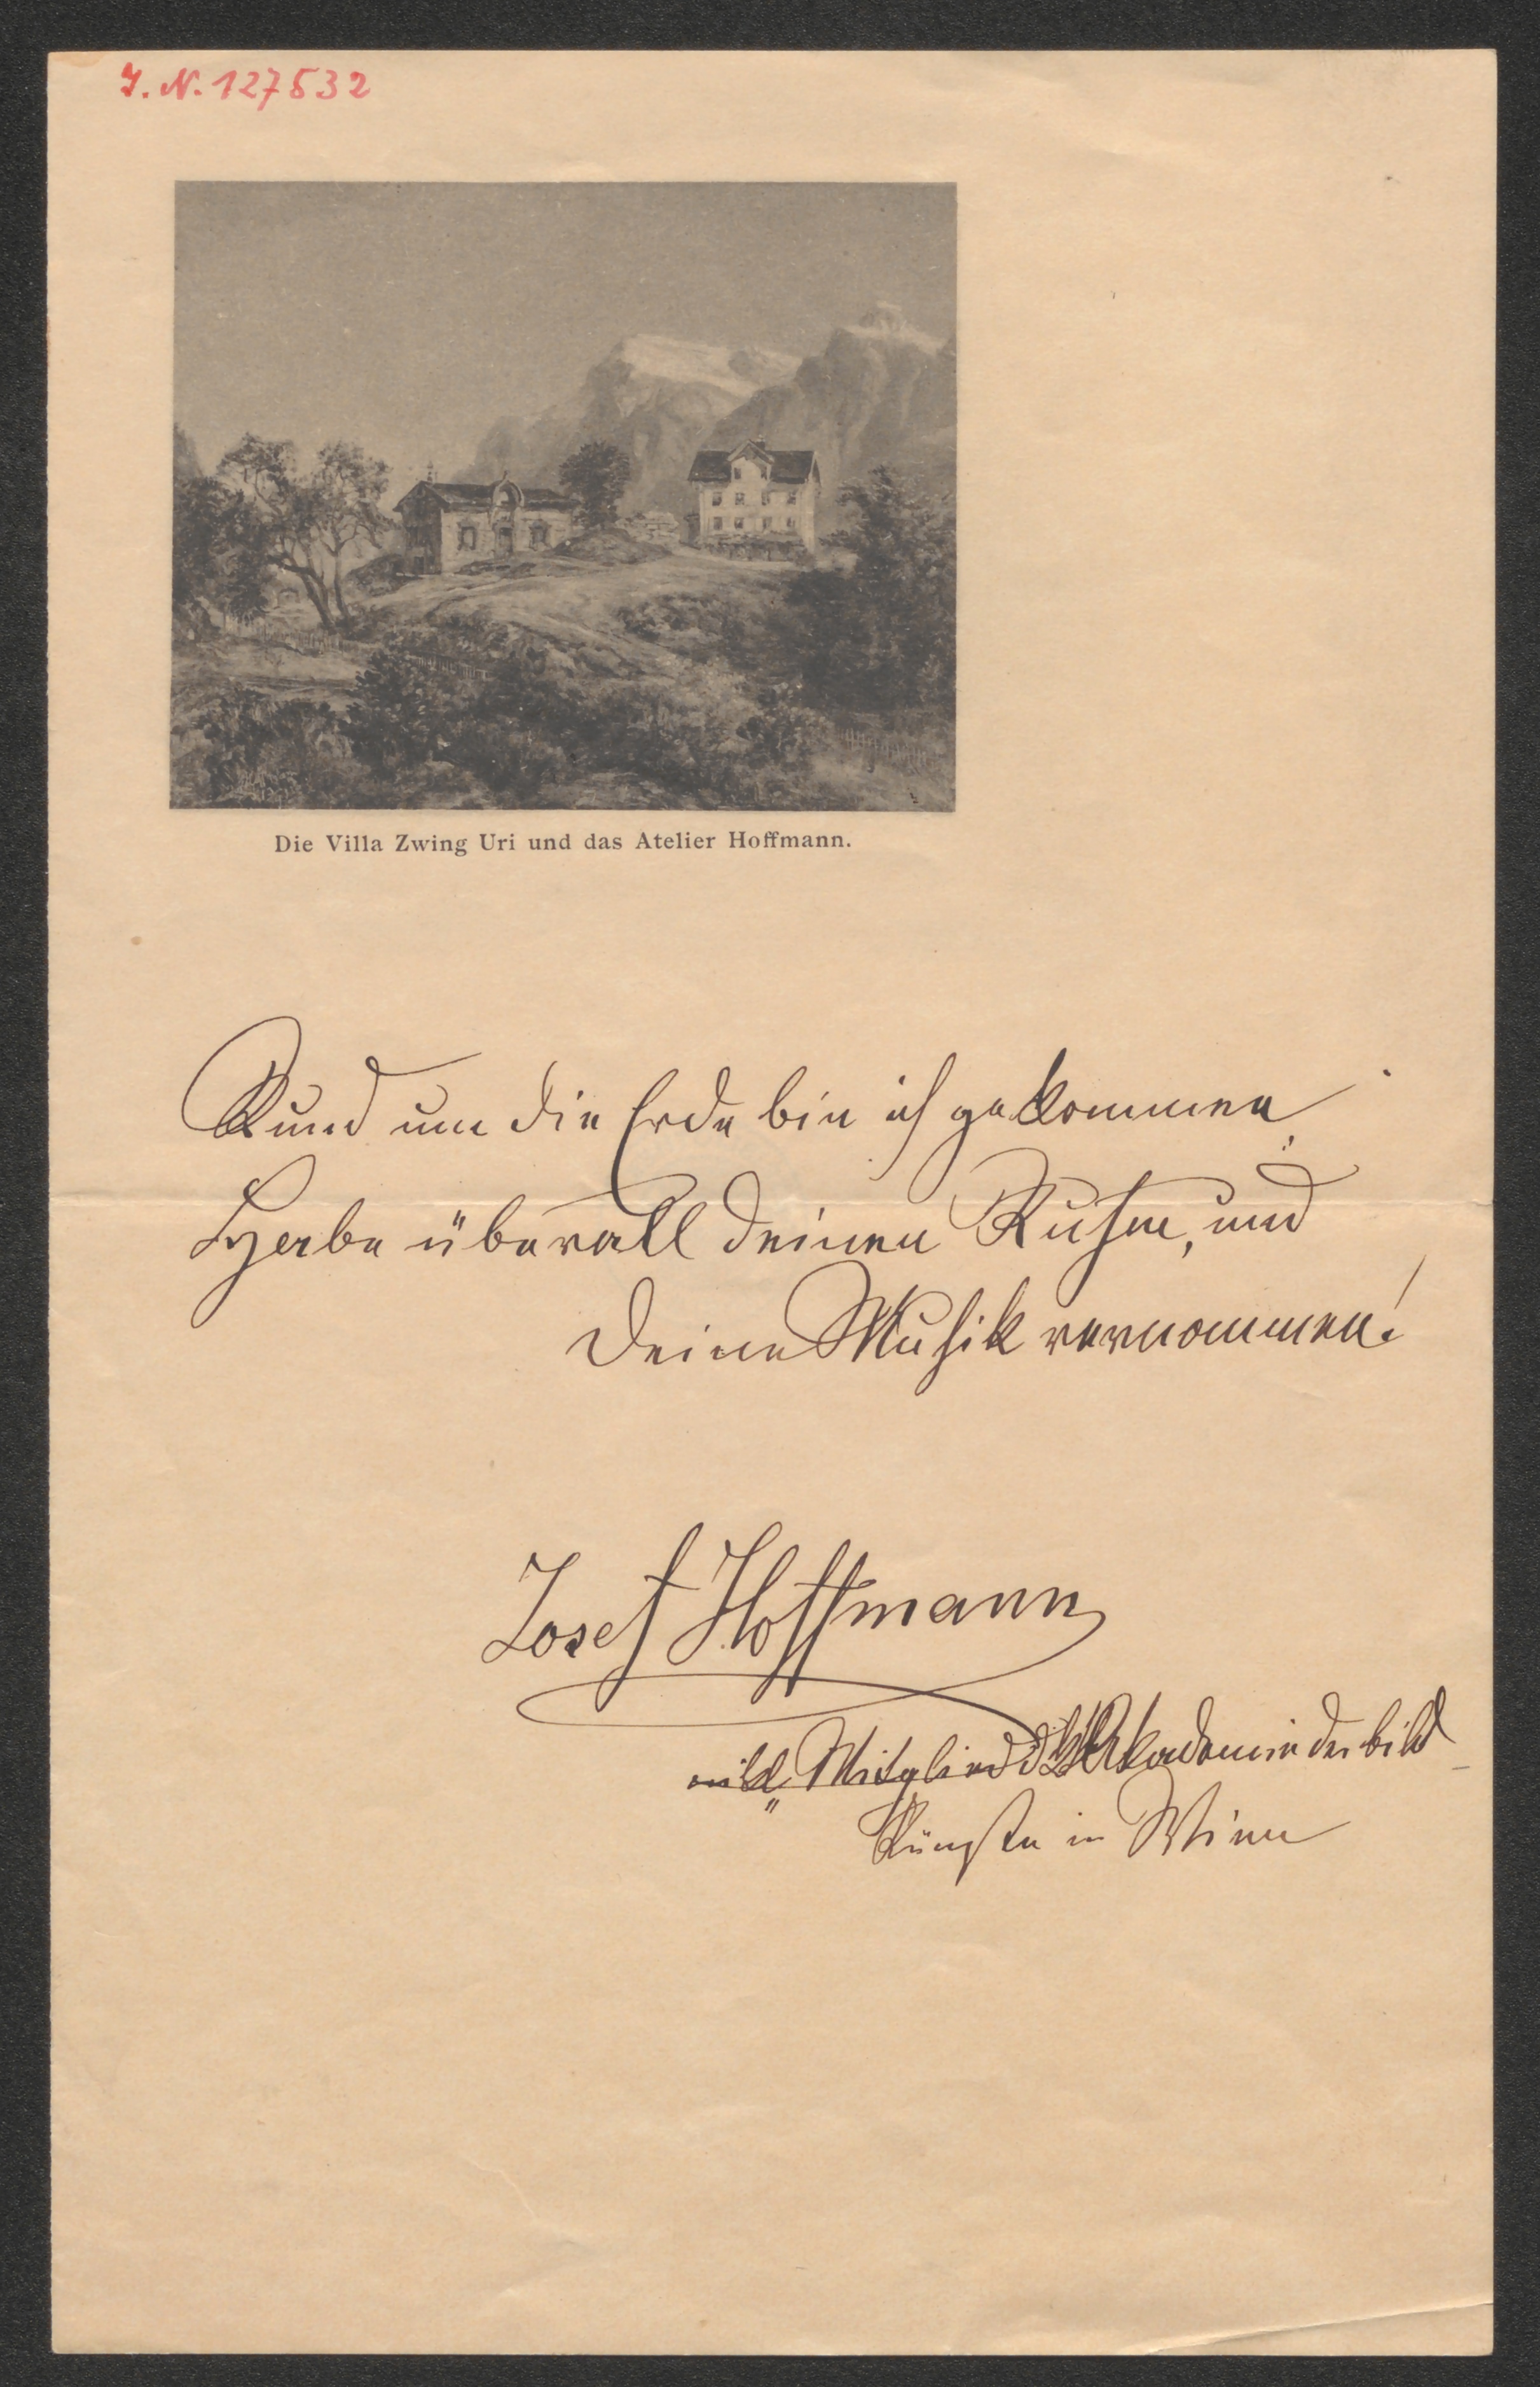 J. N. 127532
Die Villa Zwing Uri und das Atelier Hoffmann.
Rund um die Erde bin ich gekommen
Habe überall deinen Ruhm, und
Deine Musik vernommen!
Josef Hoffmann
Mitglied d. k. k. Akademie der bild
Künste in Wien